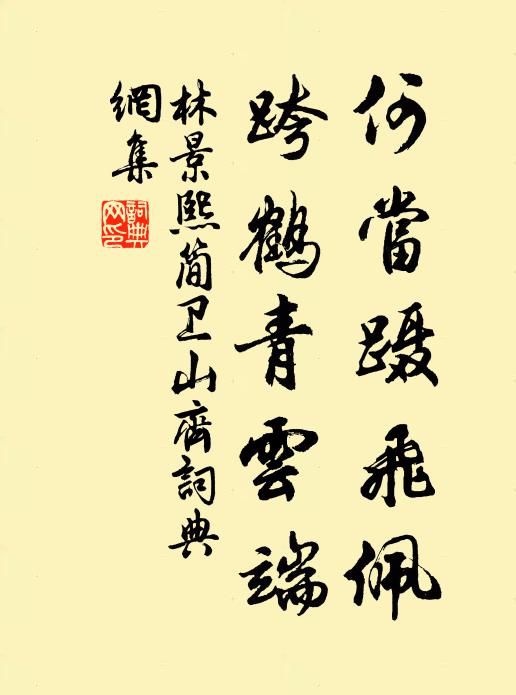 何當蹑飛佩
跨鶴青雲端
林景熙简卫山齊詞典
網集
詞典
网印